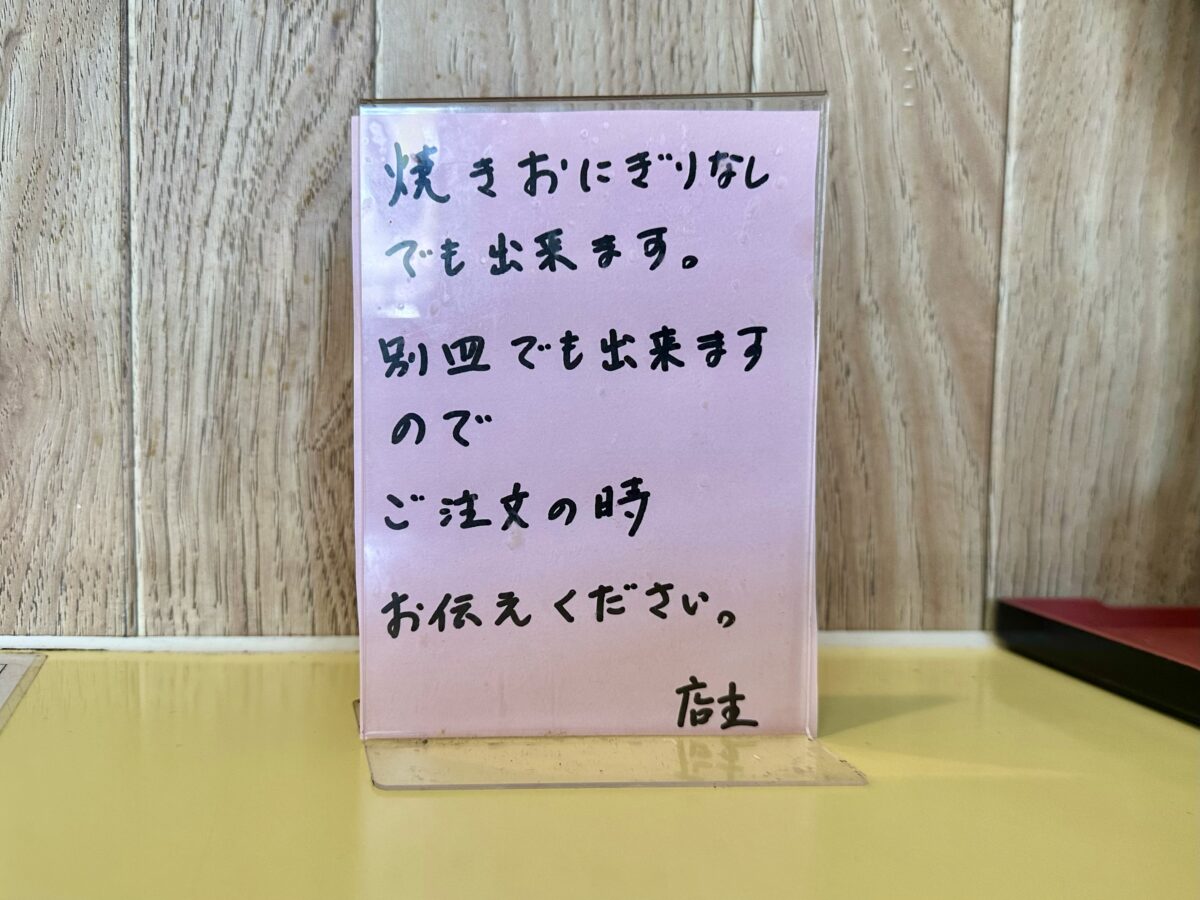 焼きおにぎりなし
でも出来ます。
別皿でも出来ます
ので
ご注文の時
お伝えください。
店主